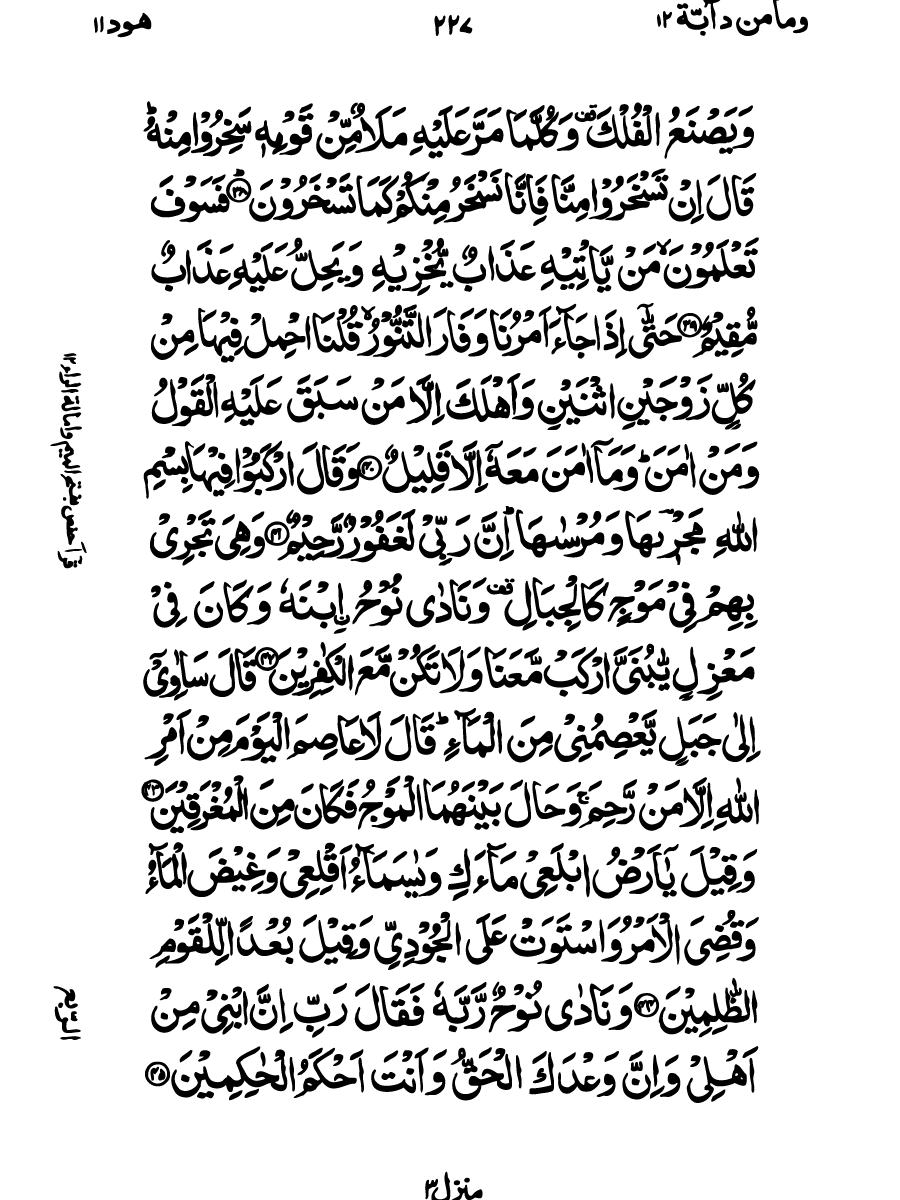 وما من دآبّة ١٢
٢٢٧
هود ١١
وَيَصْنَعُ الْفُلْكَ ࣞ وَكُلَّمَا مَرَّ عَلَيْهِ مَلَاٌ مِّنْ قَوْمِهٖ سَخِرُوْا مِنْهُ ؕ
قَالَ اِنْ تَسْخَرُوْا مِنَّا فَاِنَّا نَسْخَرُ مِنْكُمْ كَمَا تَسْخَرُوْنَ ؕ﴿۳۸﴾ فَسَوْفَ
تَعْلَمُوْنَ ۙ مَنْ يَّاْتِيْهِ عَذَابٌ يُّخْزِيْهِ وَيَحِلُّ عَلَيْهِ عَذَابٌ
مُّقِيْمٌ ﴿۳۹﴾ حَتّٰۤى اِذَا جَآءَ اَمْرُنَا وَفَارَ التَّنُّوْرُ ۙ قُلْنَا احْمِلْ فِيْهَا مِنْ
كُلٍّ زَوْجَيْنِ اثْنَيْنِ وَاَهْلَكَ اِلَّا مَنْ سَبَقَ عَلَيْهِ الْقَوْلُ
وَمَنْ اٰمَنَ ؕ وَمَاۤ اٰمَنَ مَعَهٗۤ اِلَّا قَلِيْلٌ ﴿۴۰﴾ وَقَالَ ارْكَبُوْا فِيْهَا بِسْمِ
اللّٰهِ مَجْرٖىهَا وَمُرْسٰىهَا ؕ اِنَّ رَبِّىْ لَغَفُوْرٌ رَّحِيْمٌ ﴿۴۱﴾ وَهِىَ تَجْرِىْ
بِهِمْ فِىْ مَوْجٍ كَالْجِبَالِ ࣞ وَنَادٰى نُوْحُ اِ۟بْنَهٗ وَكَانَ فِىْ
مَعْزِلٍ يّٰبُنَىَّ ارْكَبْ مَّعَنَا وَلَا تَكُنْ مَّعَ الْكٰفِرِيْنَ ﴿۴۲﴾ قَالَ سَاٰوِىْۤ
اِلٰى جَبَلٍ يَّعْصِمُنِىْ مِنَ الْمَآءِ ؕ قَالَ لَا عَاصِمَ الْيَوْمَ مِنْ اَمْرِ
اللّٰهِ اِلَّا مَنْ رَّحِمَ ۚ وَحَالَ بَيْنَهُمَا الْمَوْجُ فَكَانَ مِنَ الْمُغْرَقِيْنَ ﴿۴۳﴾
وَقِيْلَ يٰۤاَرْضُ ابْلَعِىْ مَآءَكِ وَيٰسَمَآءُ اَقْلِعِىْ وَغِيْضَ الْمَآءُ
وَقُضِىَ الْاَمْرُ وَاسْتَوَتْ عَلَى الْجُوْدِىِّ وَقِيْلَ بُعْدًا لِّلْقَوْمِ
الظّٰلِمِيْنَ ﴿۴۴﴾ وَنَادٰى نُوْحٌ رَّبَّهٗ فَقَالَ رَبِّ اِنَّ ابْنِىْ مِنْ
اَهْلِىْ وَاِنَّ وَعْدَكَ الْحَقُّ وَاَنْتَ اَحْكَمُ الْحٰكِمِيْنَ ﴿۴۵﴾
قرأ حفص بفتح الميم وامالة الراء ١٢
الرّبع
منزل ٣